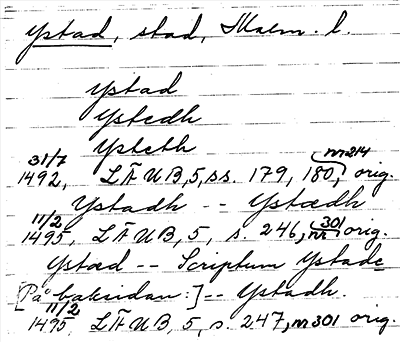 Ystad, stad, Malm. l.
Ystad
Ystedh
Ysteth
31/7 1492, LÄUB, 5, ss. 179, 180, nr 214 orig.
Ystadh -- Ystædh
11/2 1495, LÄUB, 5, s. 246, nr 301 orig.
Ystæd -- Scriptum Ystade
[På baksidan:] -- Ystadh.
11/2 1495, LÄUB, 5, s. 247, nr 301 orig.